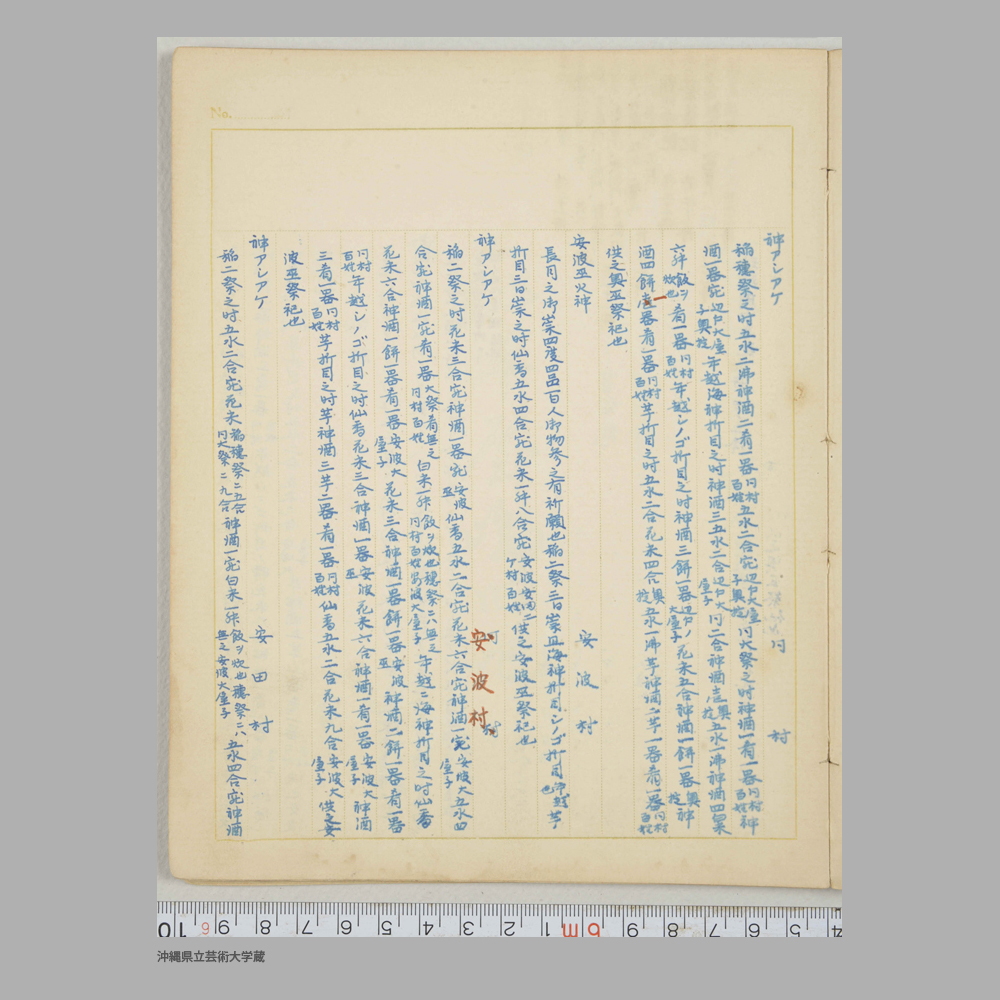 神アシアケ 同村
稲穂祭之時五水二沸神酒二肴一器同村百姓五水二合宛辺戸大屋子奥掟同大祭之時神酒一肴一器同村百姓神
酒一器宛辺戸大屋子奥掟年越海神折目之時神酒三五水二合辺戸大屋子同二合神酒壱奥掟五水一沸神酒四器米
六舛飯ヲ炊也肴一器同村百姓年越シノゴ折目之時神酒三餅一器辺戸ノ大屋子花米五合神酒一餅一器奥掟神
酒四餅一器肴一器同村百姓芋折目之時五水二合花米四合奥掟五水一沸芋神酒二芋一器肴一器同村百姓
供之奥巫祭祀也
安波巫火神 安波村
長月之御崇四度四品百人御物参之有祈願也稲二祭三日崇且海神折目シノゴ折目年越也芋
折目三日崇之時仙香五水四合宛花米一舛八合宛安波安田二ケ村百姓供之安波巫祭祀也
神アシアケ 安波村
稲二祭之時花米三合宛神酒一器宛安波巫仙香五水二合宛花米六合宛神酒一宛安波大屋子五水四
合宛神酒一宛肴一器大祭肴無之同村百姓白米一舛飯ヲ炊也穂祭ニハ無之同村百姓安波大屋子年越二海神折目之時仙香
花米六合神酒一餅一器肴一器安波大屋子花米三合神酒一器餅一器安波巫神酒二餅一器肴一器
同村百姓年越シノゴ折目之時仙香花米三合神酒一器安波巫花米六合神酒一肴一器安波大屋子神酒
三肴一器同村百姓芋折目之時芋神酒三芋二器肴一器同村百姓仙香五水二合花米九合安波大屋子供之安
波巫祭祀也
神アシアケ 安田村
稲二祭之時五水二合宛花米稲穂祭ニ五合同大祭ニ九合神酒一宛白米一舛飯ヲ炊也穂祭ニハ無之安波大屋子五水四合宛神酒
No.
沖縄県立芸術大学蔵